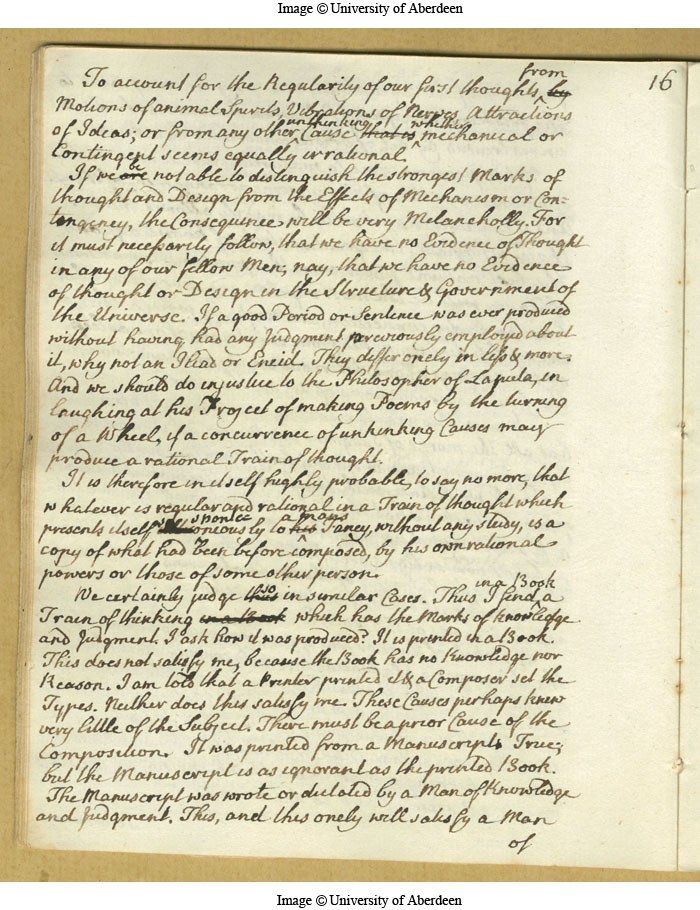 Image © University of Aberdeen
16
from
To account for the Regularity of our first thoughts, by
Motions of animal Spirits, Vibrations of Nerves, Attractions
unthinking whether
of Ideas; or from any other Cause that is mechanical or
Contingent seems equally irrational.
be
If we are not able to distinguish the strongest Marks of
thought and Design from the Effects of Mechanism or Con=
tingency, the Consequence will be very Melancholly. For
it must necessarily follow, that we have no Evidence of Thought
in any of our fellow Men, nay, that we have no Evidence
of thought or Design in the Structure & Government of
the Universe. If a good Period or Sentence was ever produced
without having had any Judgment previously employed about
it, why not an Iliad or Eneid. They differ onely in less & more.
And we should do injustice to the Philosopher of Laputa, in
laughing at his Project of making Poems by the turning
of a Wheel, if a concurrence of unhinking Causes may
produce a rational Train of thought.
It is therefore in itself highly probable, to say no more, that
whatever is regular and rational in a Train of thought which
sponta a mans
presents itself neously to his Fancy, without any study, is a
copy of what had been before composed, by his own rational
powers or those of some other person.
so in a Book
We certainly judge thus in similar Cases. Thus I find a
Train of thinking in a Book which has the Marks of knowledge
and Judgment. I ask how it was produced? It is printed in a Book.
This does not satisfy me, because the Book has no Knowledge nor
Reason. I am told that a Printer printed it & a Composer set the
Types. Neither does this satisfy me. These Causes perhaps knew
very little of the Subject. There must be a prior Cause of the
Composition. It was printed from a Manuscript. True;
but the Manuscript is as ignorant as the printed Book.
The Manuscript was wrote or dictated by a Man of Knowledge
and Judgment. This, and this onely will satisfy a Man
of
Image © University of Aberdeen